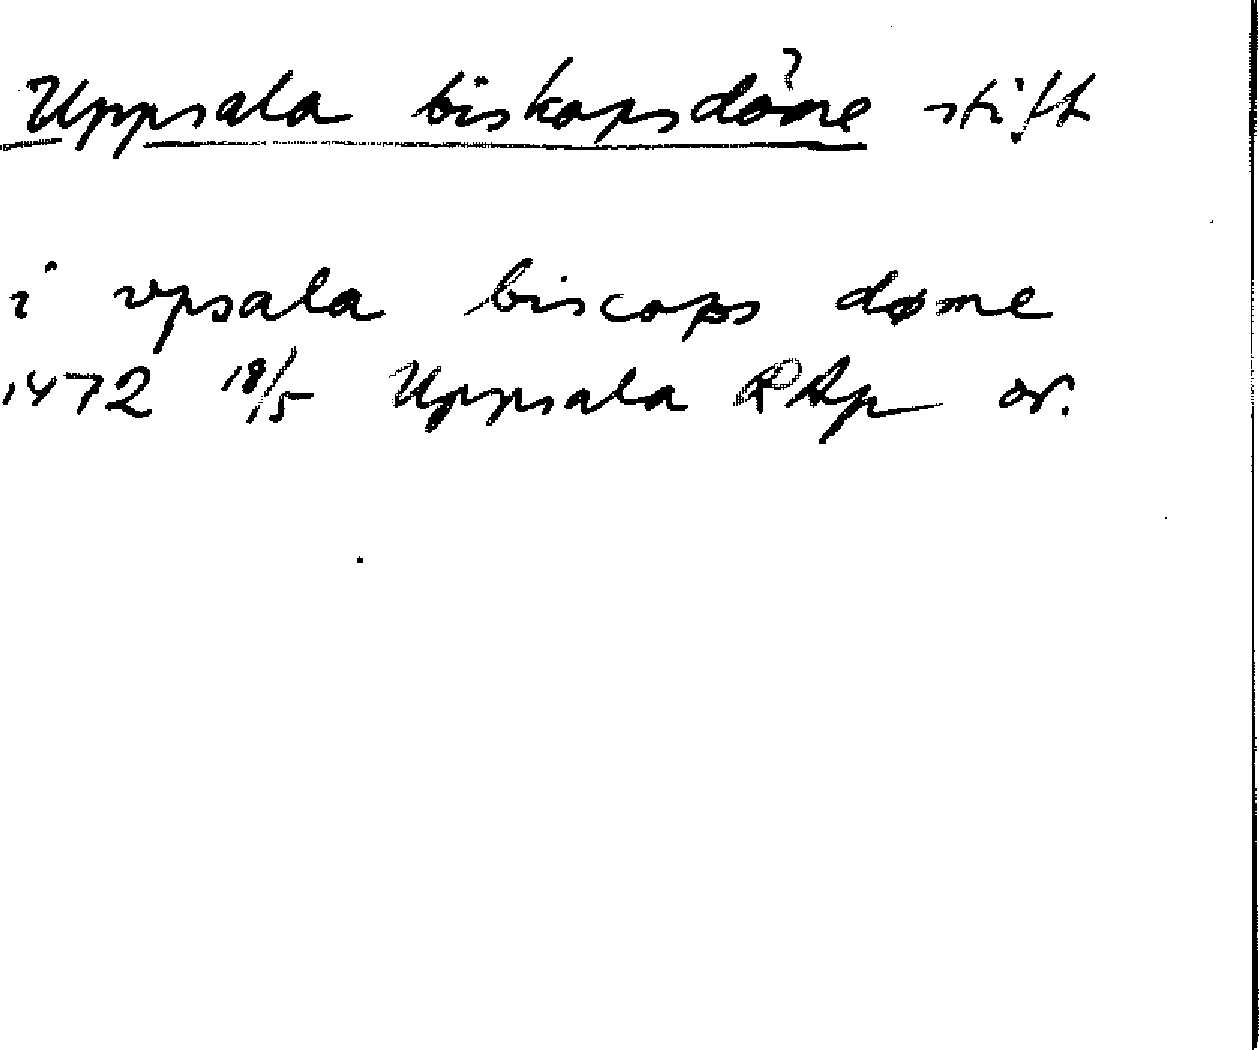 Uppsala biskopsdöme stift
i vpsala biscops døme
1472 18/5 Uppsala RAp or.